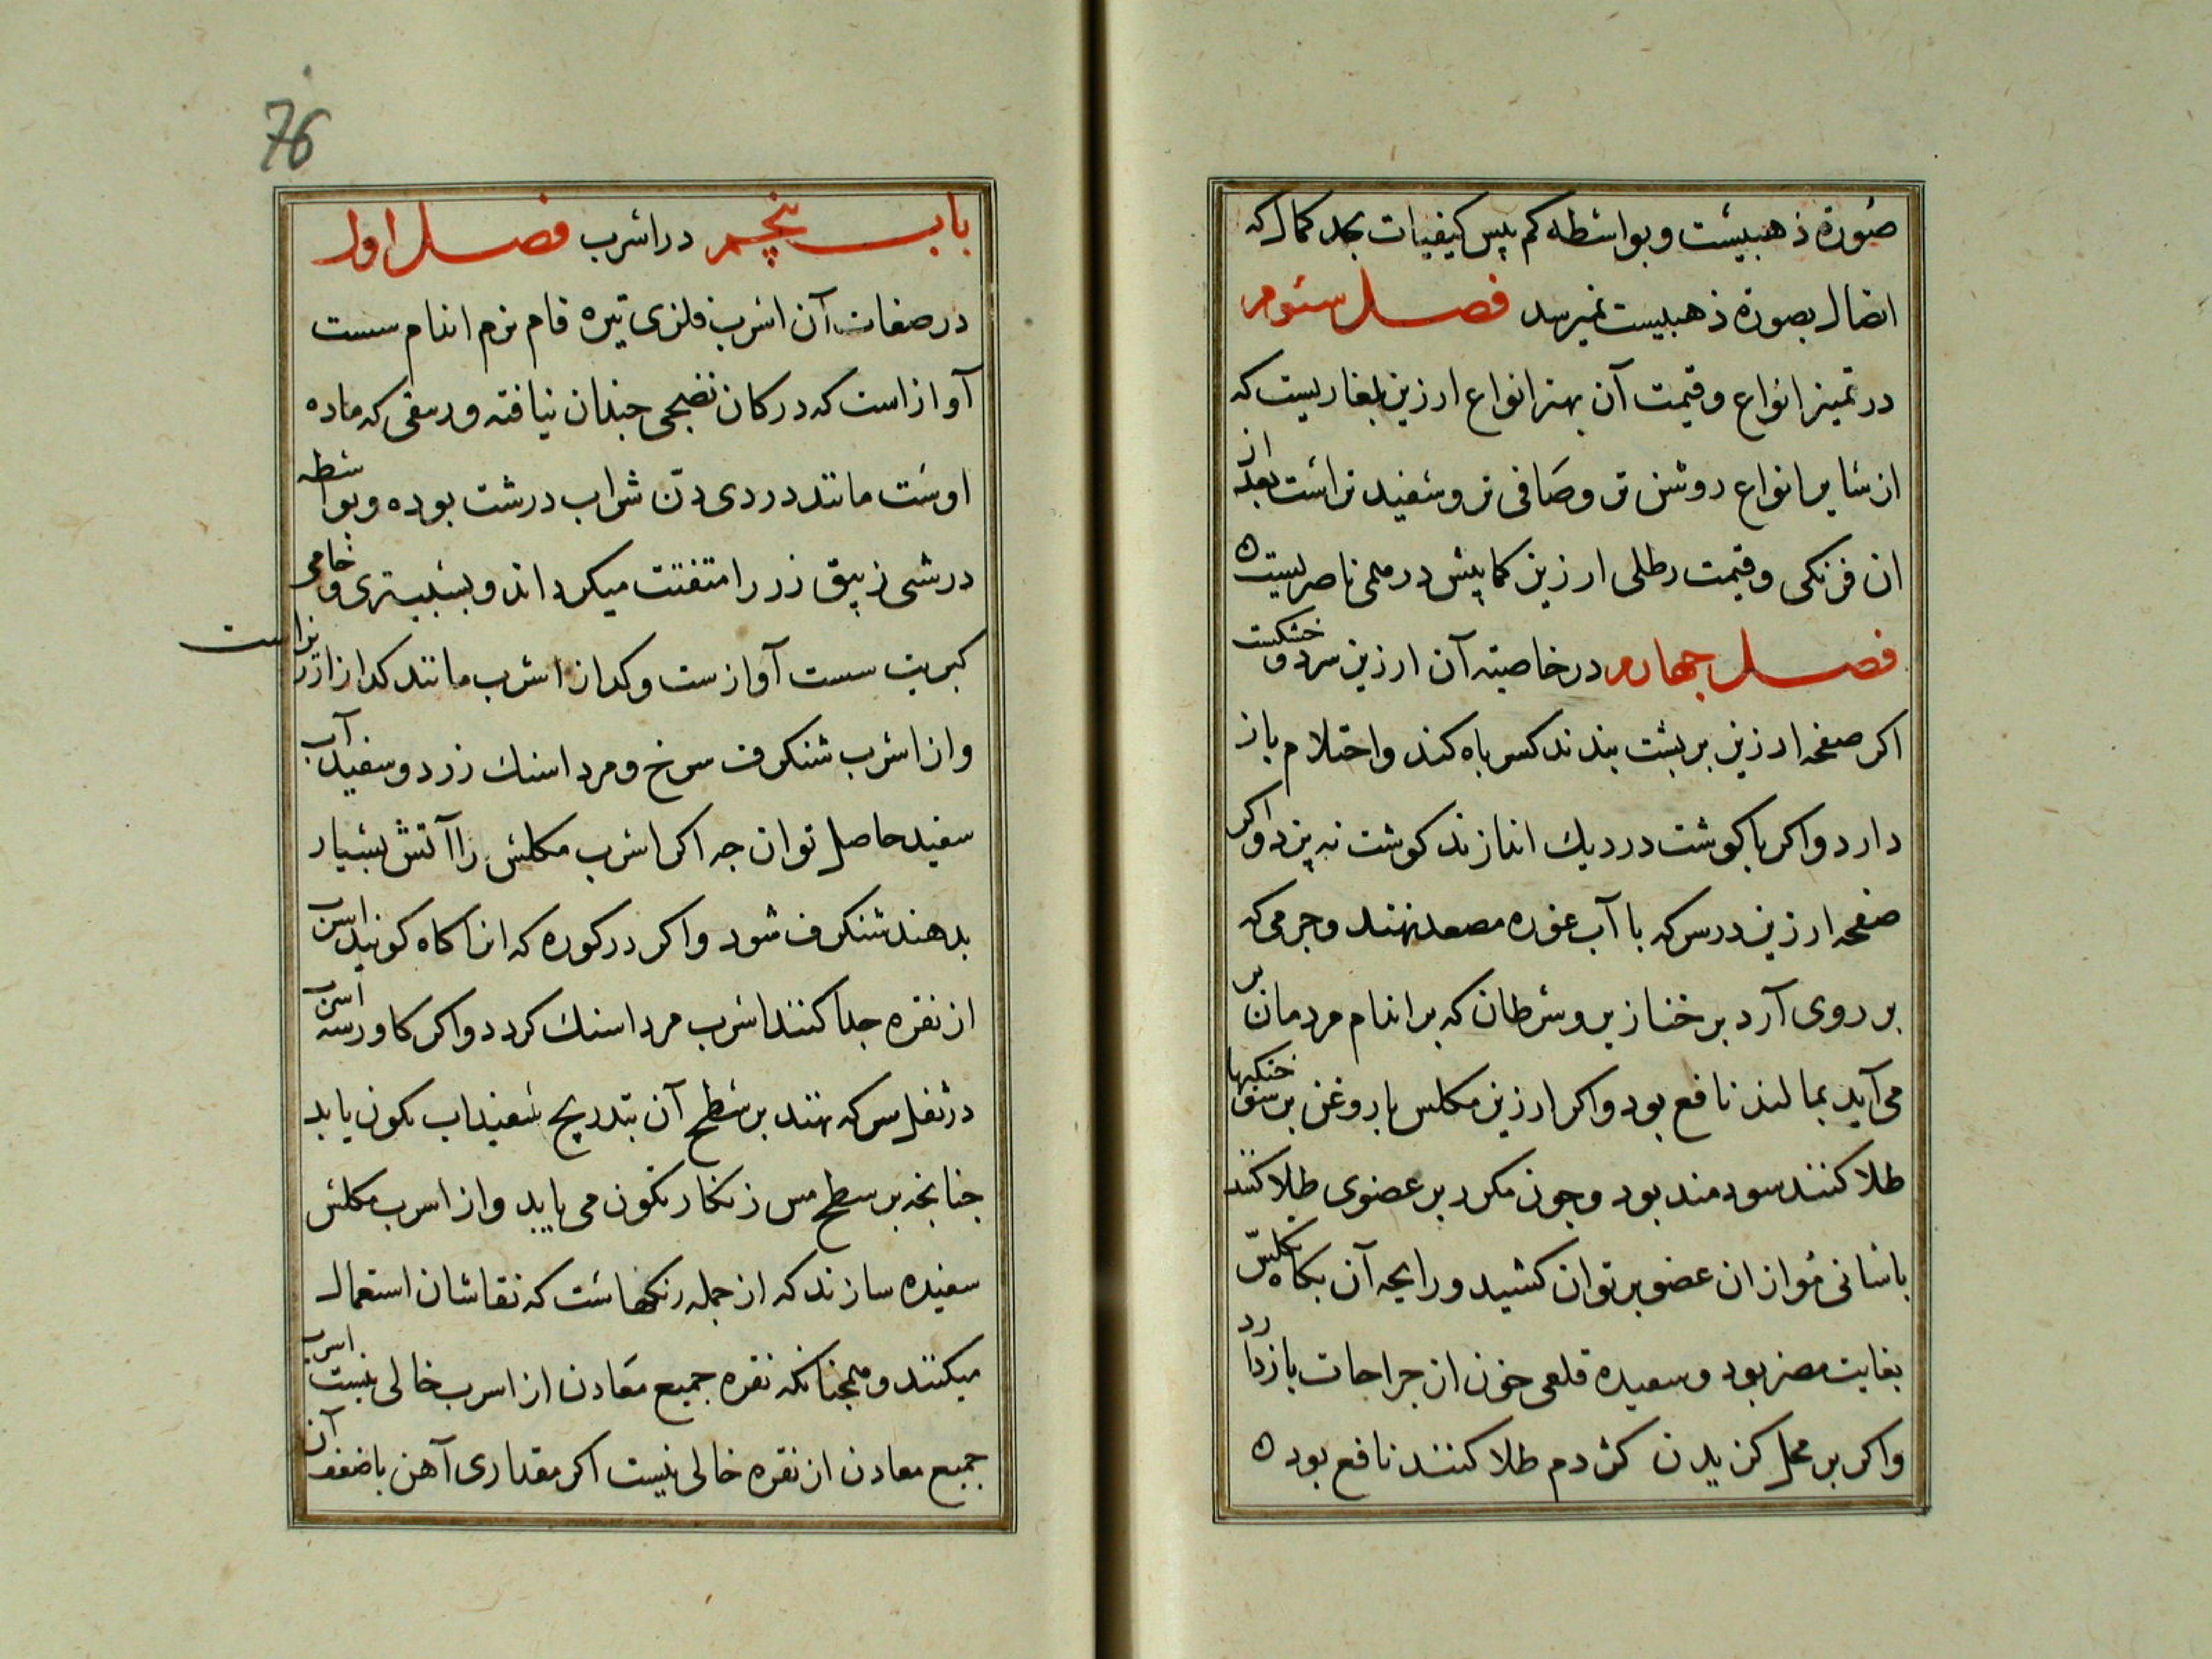 صورة ذهبیست و بواسطه کم پیس کیفیات بحد کمال که
اتصال بصورة ذهبیست نمیرسد فصل سئوم
در تمیز انواع و قیمت آن بهتر انواع ارزیز بلغاریست که
از سایر انواع روشن تر و صافی تر و سفید تر است بعد از
ان فرنکی و قیمت رطلی ارزیز کمابیش درمی ناصریست ه
فصل چهارم در خاصیته آن ارزیز سرد و خشکست
اکر صفحه ارزیز بر پشت بندند کسر باه کند و احتلام باز
دارد و اکر با کوشت در دیك اندازند کوشت نه پزد و اکر
صفحه ارزیز در سرکه با آب غوره مصعد نهند و جرمی که
بر روی آرد بر خنازیر و سرطان که بر اندام مردمان بر
می آید بمالند نافع بود و اکر ارزیز مکلس با روغن بر
طلا کنند سودمند بود و چون مکرر بر عضوی طلا کنند
باسانی مو از ان عضو بر توان کشید و رایحه آن بکاه تکلیس
بغایت مضر بود و سعیده قلعی خون از جراحات باز دارد
و اکر بر محل کزیدن کژدم طلا کنند نافع بود ه
76
باب پنجم در اسرب فصل اول
در صفات آن اسرب فلزی تیره فام نرم اندام سست
آواز است که در کان نضجی چندان نیافته و رمقی که ماده
اوست مانند دردی دن شراب درشت بوده و بواسطه
درشتی زیبق زر را متفتت میکرداند و بسبب تری و خامی
کبریت سست آواز ست و کداز اسرب مانند کداز ارزیز است
و از اسرب شنکرف سرخ و مرداسنك زرد و سفیدآب
سفید حاصل توان چه اکر اسرب مکلس را آتش بسیار
بدهند شنکرف شود و اکر در کوره که انرا کاه کونید اسرب
از نقره جدا کنند اسرب مرداسنك کردد و اکر کاورسه اسرب
در ثفل سرکه نهند بر سطح آن بتدریج سفیداب تکون یابد
چنانچه بر سطح مس زنکار تکون می یابد و از اسرب مکلس
سفیده سازند که از جمله رنکهاست که نقاشان استعمال
میکنند و همچنانکه نقره جمیع معادن از اسرب خالی نیست اسرب
جمیع معادن از نقره خالی نیست اکر مقداری آهن با ضعف آن